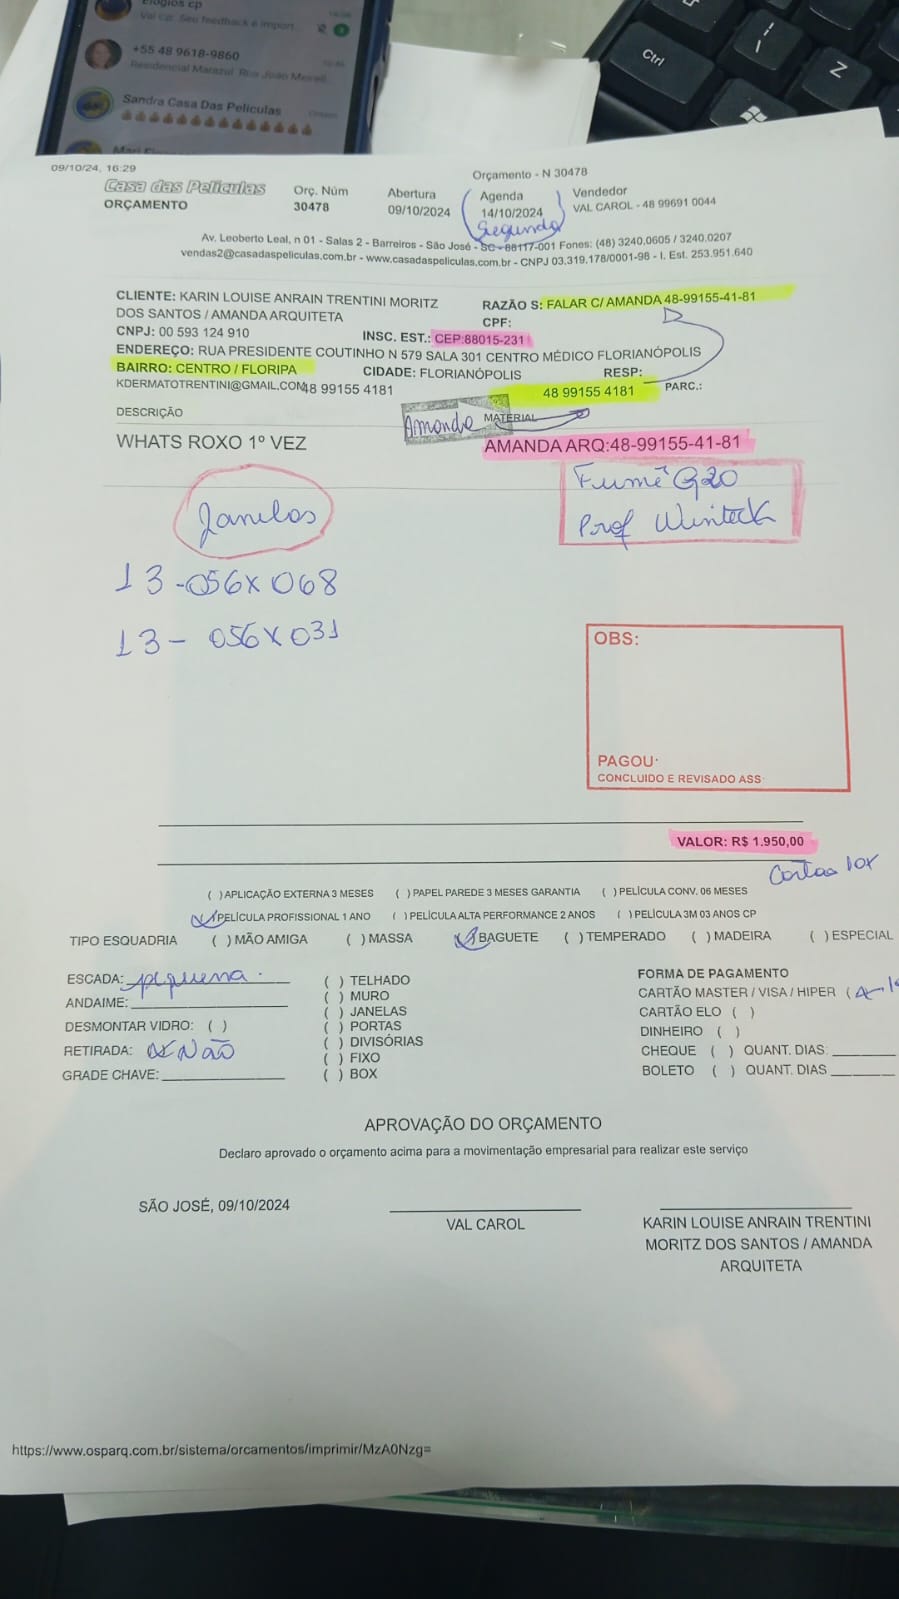 Elogios cp
Val cp: Seu feedback é import...
+55 48 9618-9860
Residencial Marazul Rua João Meirell...
Sandra Casa Das Películas
Ctrl
Z
09/10/24, 16:29
Orçamento - N 30478
Casa das Películas
ORÇAMENTO
Orç. Núm
30478
Abertura
09/10/2024
Agenda
14/10/2024
Segunda
Vendedor
VAL CAROL - 48 99691 0044
Av. Leoberto Leal, n 01 - Salas 2 - Barreiros - São José - SC - 88117-001 Fones: (48) 3240.0605 / 3240.0207
vendas2@casadaspeliculas.com.br - www.casadaspeliculas.com.br - CNPJ 03.319.178/0001-98 - I. Est. 253.951.640
CLIENTE: KARIN LOUISE ANRAIN TRENTINI MORITZ
DOS SANTOS / AMANDA ARQUITETA
RAZÃO S: FALAR C/ AMANDA 48-99155-41-81
CPF:
CNPJ: 00 593 124 910
INSC. EST.: CEP:88015-231
ENDEREÇO: RUA PRESIDENTE COUTINHO N 579 SALA 301 CENTRO MÉDICO FLORIANÓPOLIS
BAIRRO: CENTRO / FLORIPA
CIDADE: FLORIANÓPOLIS
RESP:
KDERMATOTRENTINI@GMAIL.COM
48 99155 4181
48 99155 4181
PARC.:
DESCRIÇÃO
Amanda
MATERIAL
WHATS ROXO 1º VEZ
AMANDA ARQ:48-99155-41-81
Janelas
Fumê G20
Prof Winteck
13 - 056 X 068
13 - 056 X 031
OBS:
PAGOU:
CONCLUIDO E REVISADO ASS:
VALOR: R$ 1.950,00
Cartão 10x
( ) APLICAÇÃO EXTERNA 3 MESES ( ) PAPEL PAREDE 3 MESES GARANTIA ( ) PELÍCULA CONV. 06 MESES
(X) PELÍCULA PROFISSIONAL 1 ANO ( ) PELÍCULA ALTA PERFORMANCE 2 ANOS ( ) PELÍCULA 3M 03 ANOS CP
TIPO ESQUADRIA ( ) MÃO AMIGA ( ) MASSA (X) BAGUETE ( ) TEMPERADO ( ) MADEIRA ( ) ESPECIAL
ESCADA: pequena.
ANDAIME:
DESMONTAR VIDRO: ( )
RETIRADA: (X Não
GRADE CHAVE:
( ) TELHADO
( ) MURO
( ) JANELAS
( ) PORTAS
( ) DIVISÓRIAS
( ) FIXO
( ) BOX
FORMA DE PAGAMENTO
CARTÃO MASTER / VISA / HIPER (
CARTÃO ELO ( )
DINHEIRO ( )
CHEQUE ( ) QUANT. DIAS:
BOLETO ( ) QUANT. DIAS
APROVAÇÃO DO ORÇAMENTO
Declaro aprovado o orçamento acima para a movimentação empresarial para realizar este serviço
SÃO JOSÉ, 09/10/2024
VAL CAROL
KARIN LOUISE ANRAIN TRENTINI
MORITZ DOS SANTOS / AMANDA
ARQUITETA
https://www.osparq.com.br/sistema/orcamentos/imprimir/MzA0Nzg=